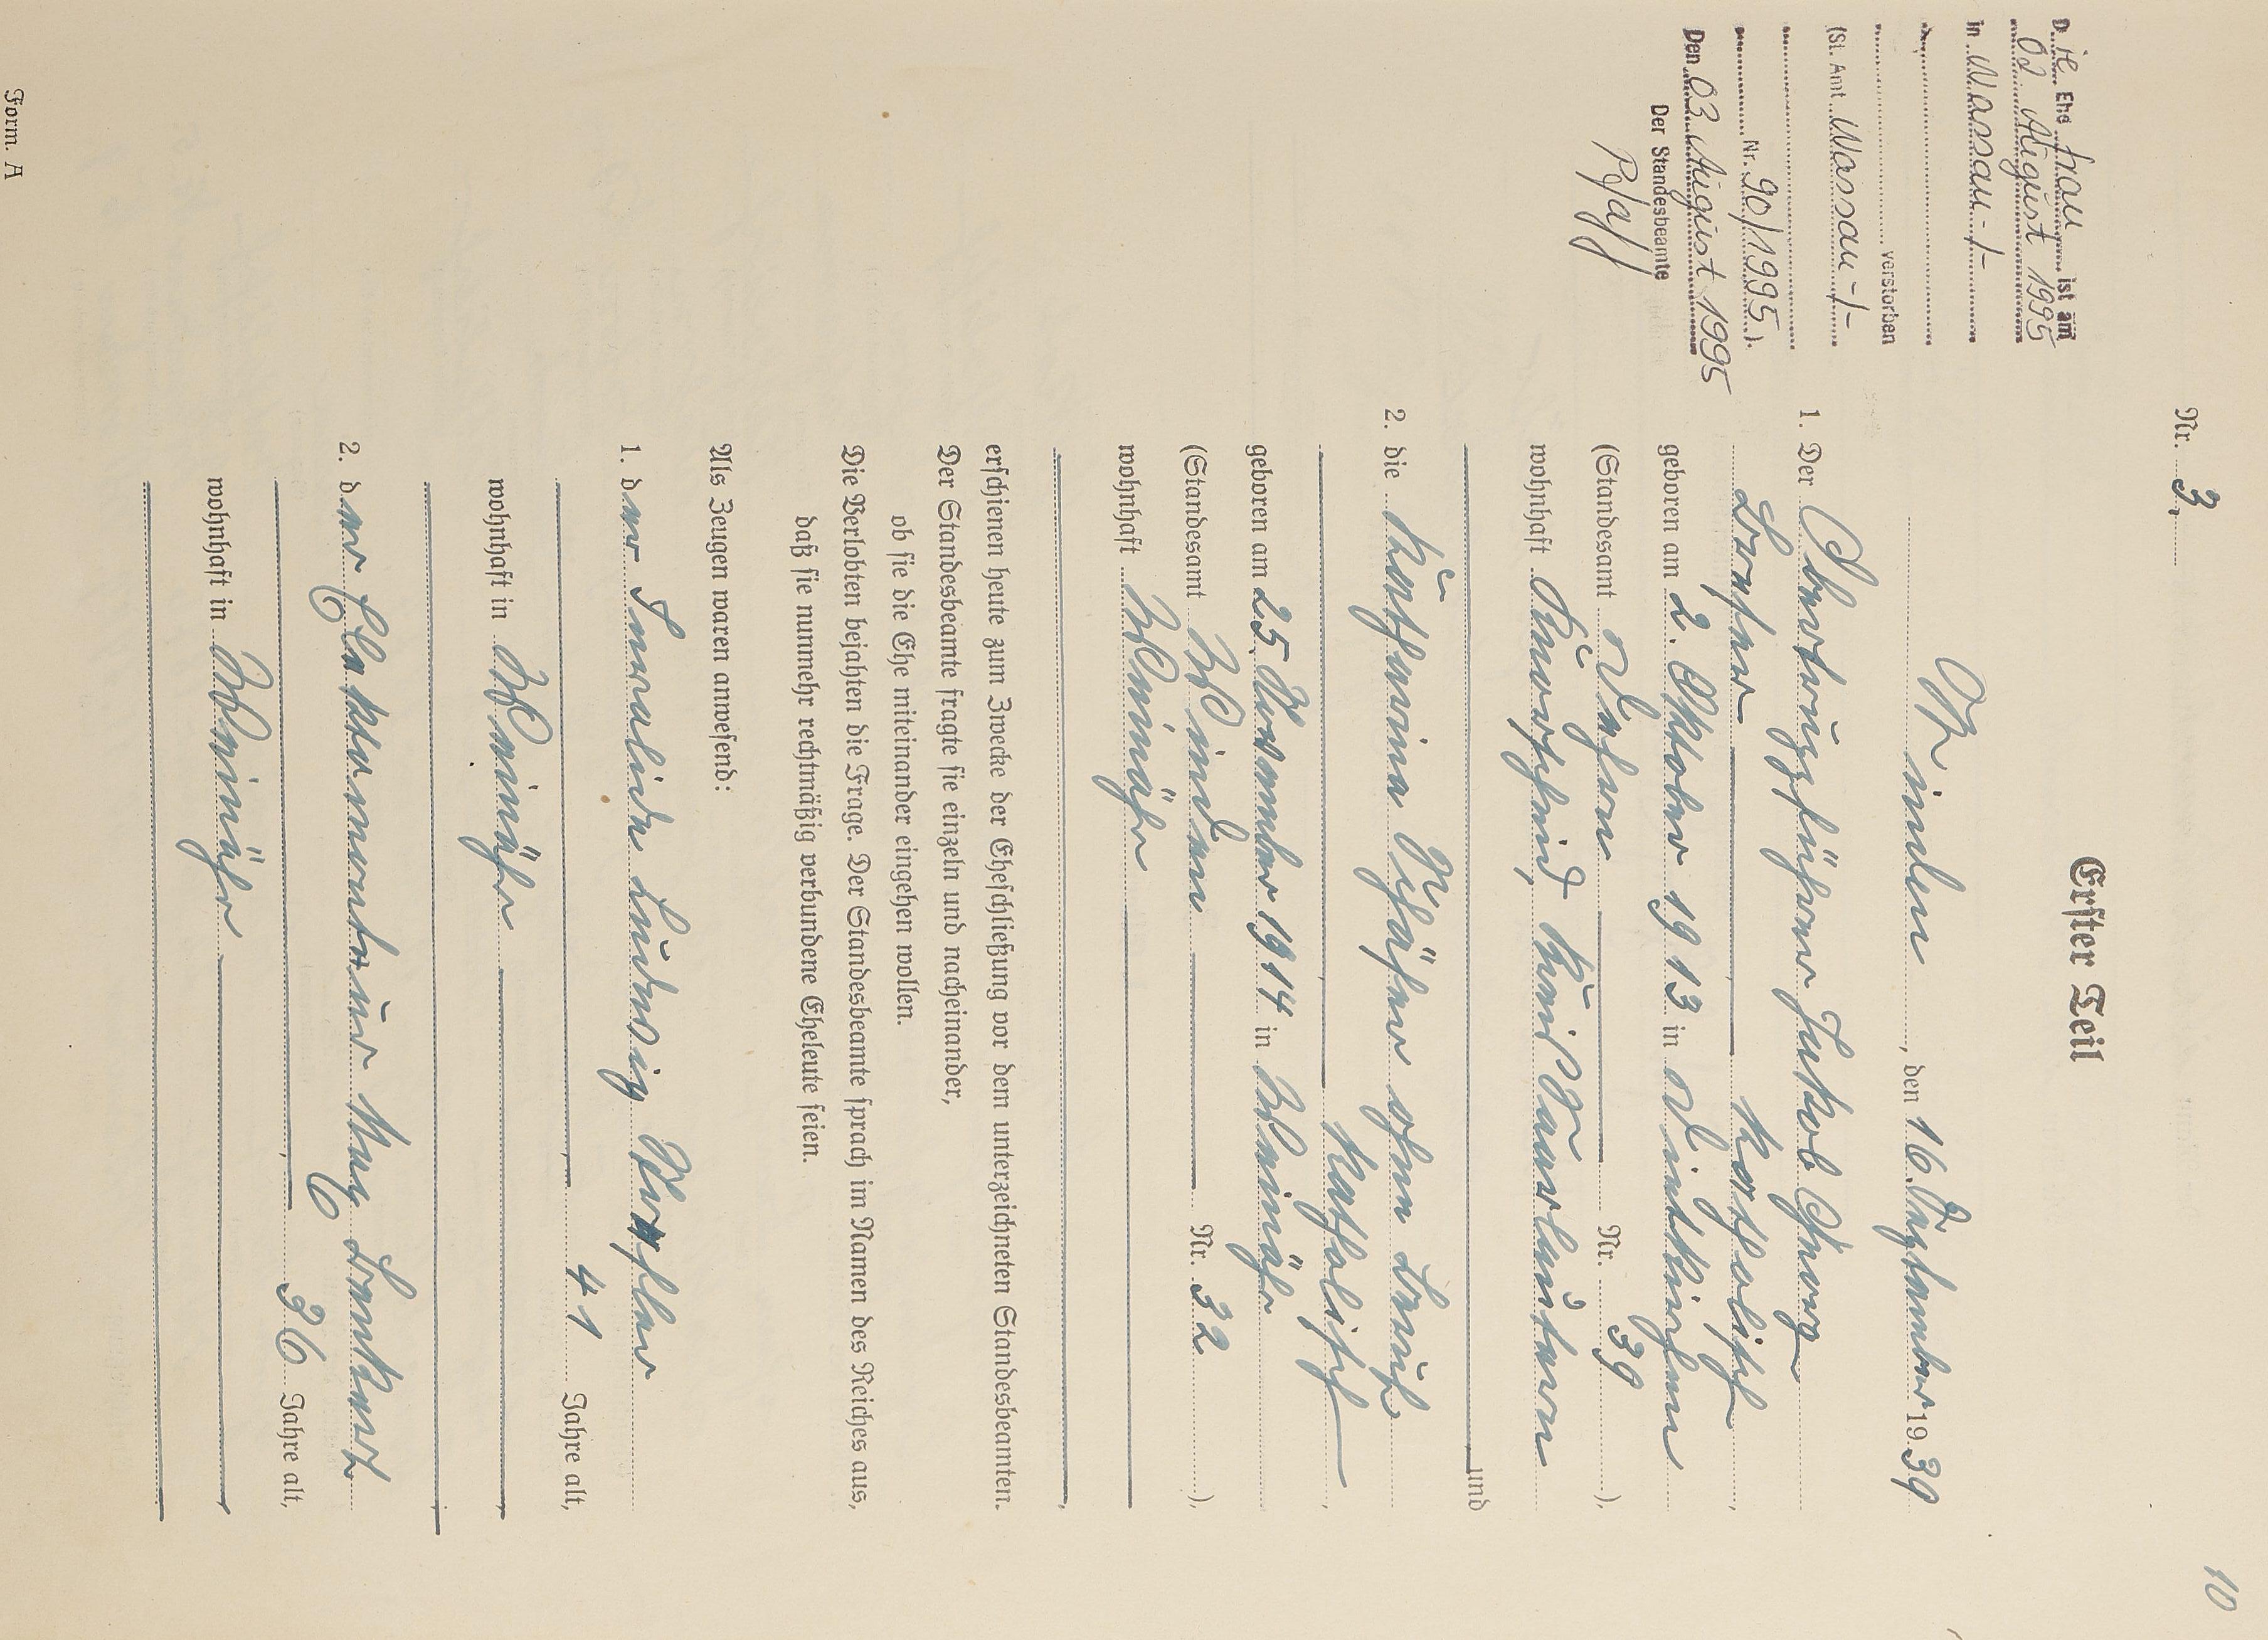 10
Nr. 3.
Erster Teil
Die Ehefrau ist am
02. August 1995
in Nassau -/-
verstorben
(St. Amt Nassau -/-
Nr. 90/1995).
Den 03. August 1995
Der Standesbeamte
Winden, den 16. Dezember 1939
1. Der Jakob Georg
katholisch,
geboren am 2. Oktober 1913 in Dietkirchen
(Standesamt Dehrn Nr. 39),
wohnhaft Kreis Saarlautern
und
2. die Katharina Schäfer ohne Beruf
katholisch,
geboren am 25. November 1914 in Weinähr
(Standesamt Winden Nr. 32),
wohnhaft Weinähr
erschienen heute zum Zwecke der Eheschließung vor dem unterzeichneten Standesbeamten.
Der Standesbeamte fragte sie einzeln und nacheinander,
ob sie die Ehe miteinander eingehen wollen.
Die Verlobten bejahten die Frage. Der Standesbeamte sprach im Namen des Reiches aus,
daß sie nunmehr rechtmäßig verbundene Eheleute seien.
Als Zeugen waren anwesend:
1. der Invalide Ludwig
41 Jahre alt,
wohnhaft in Weinähr
2. der Elektromonteur Max
36 Jahre alt,
wohnhaft in Weinähr
Form. A